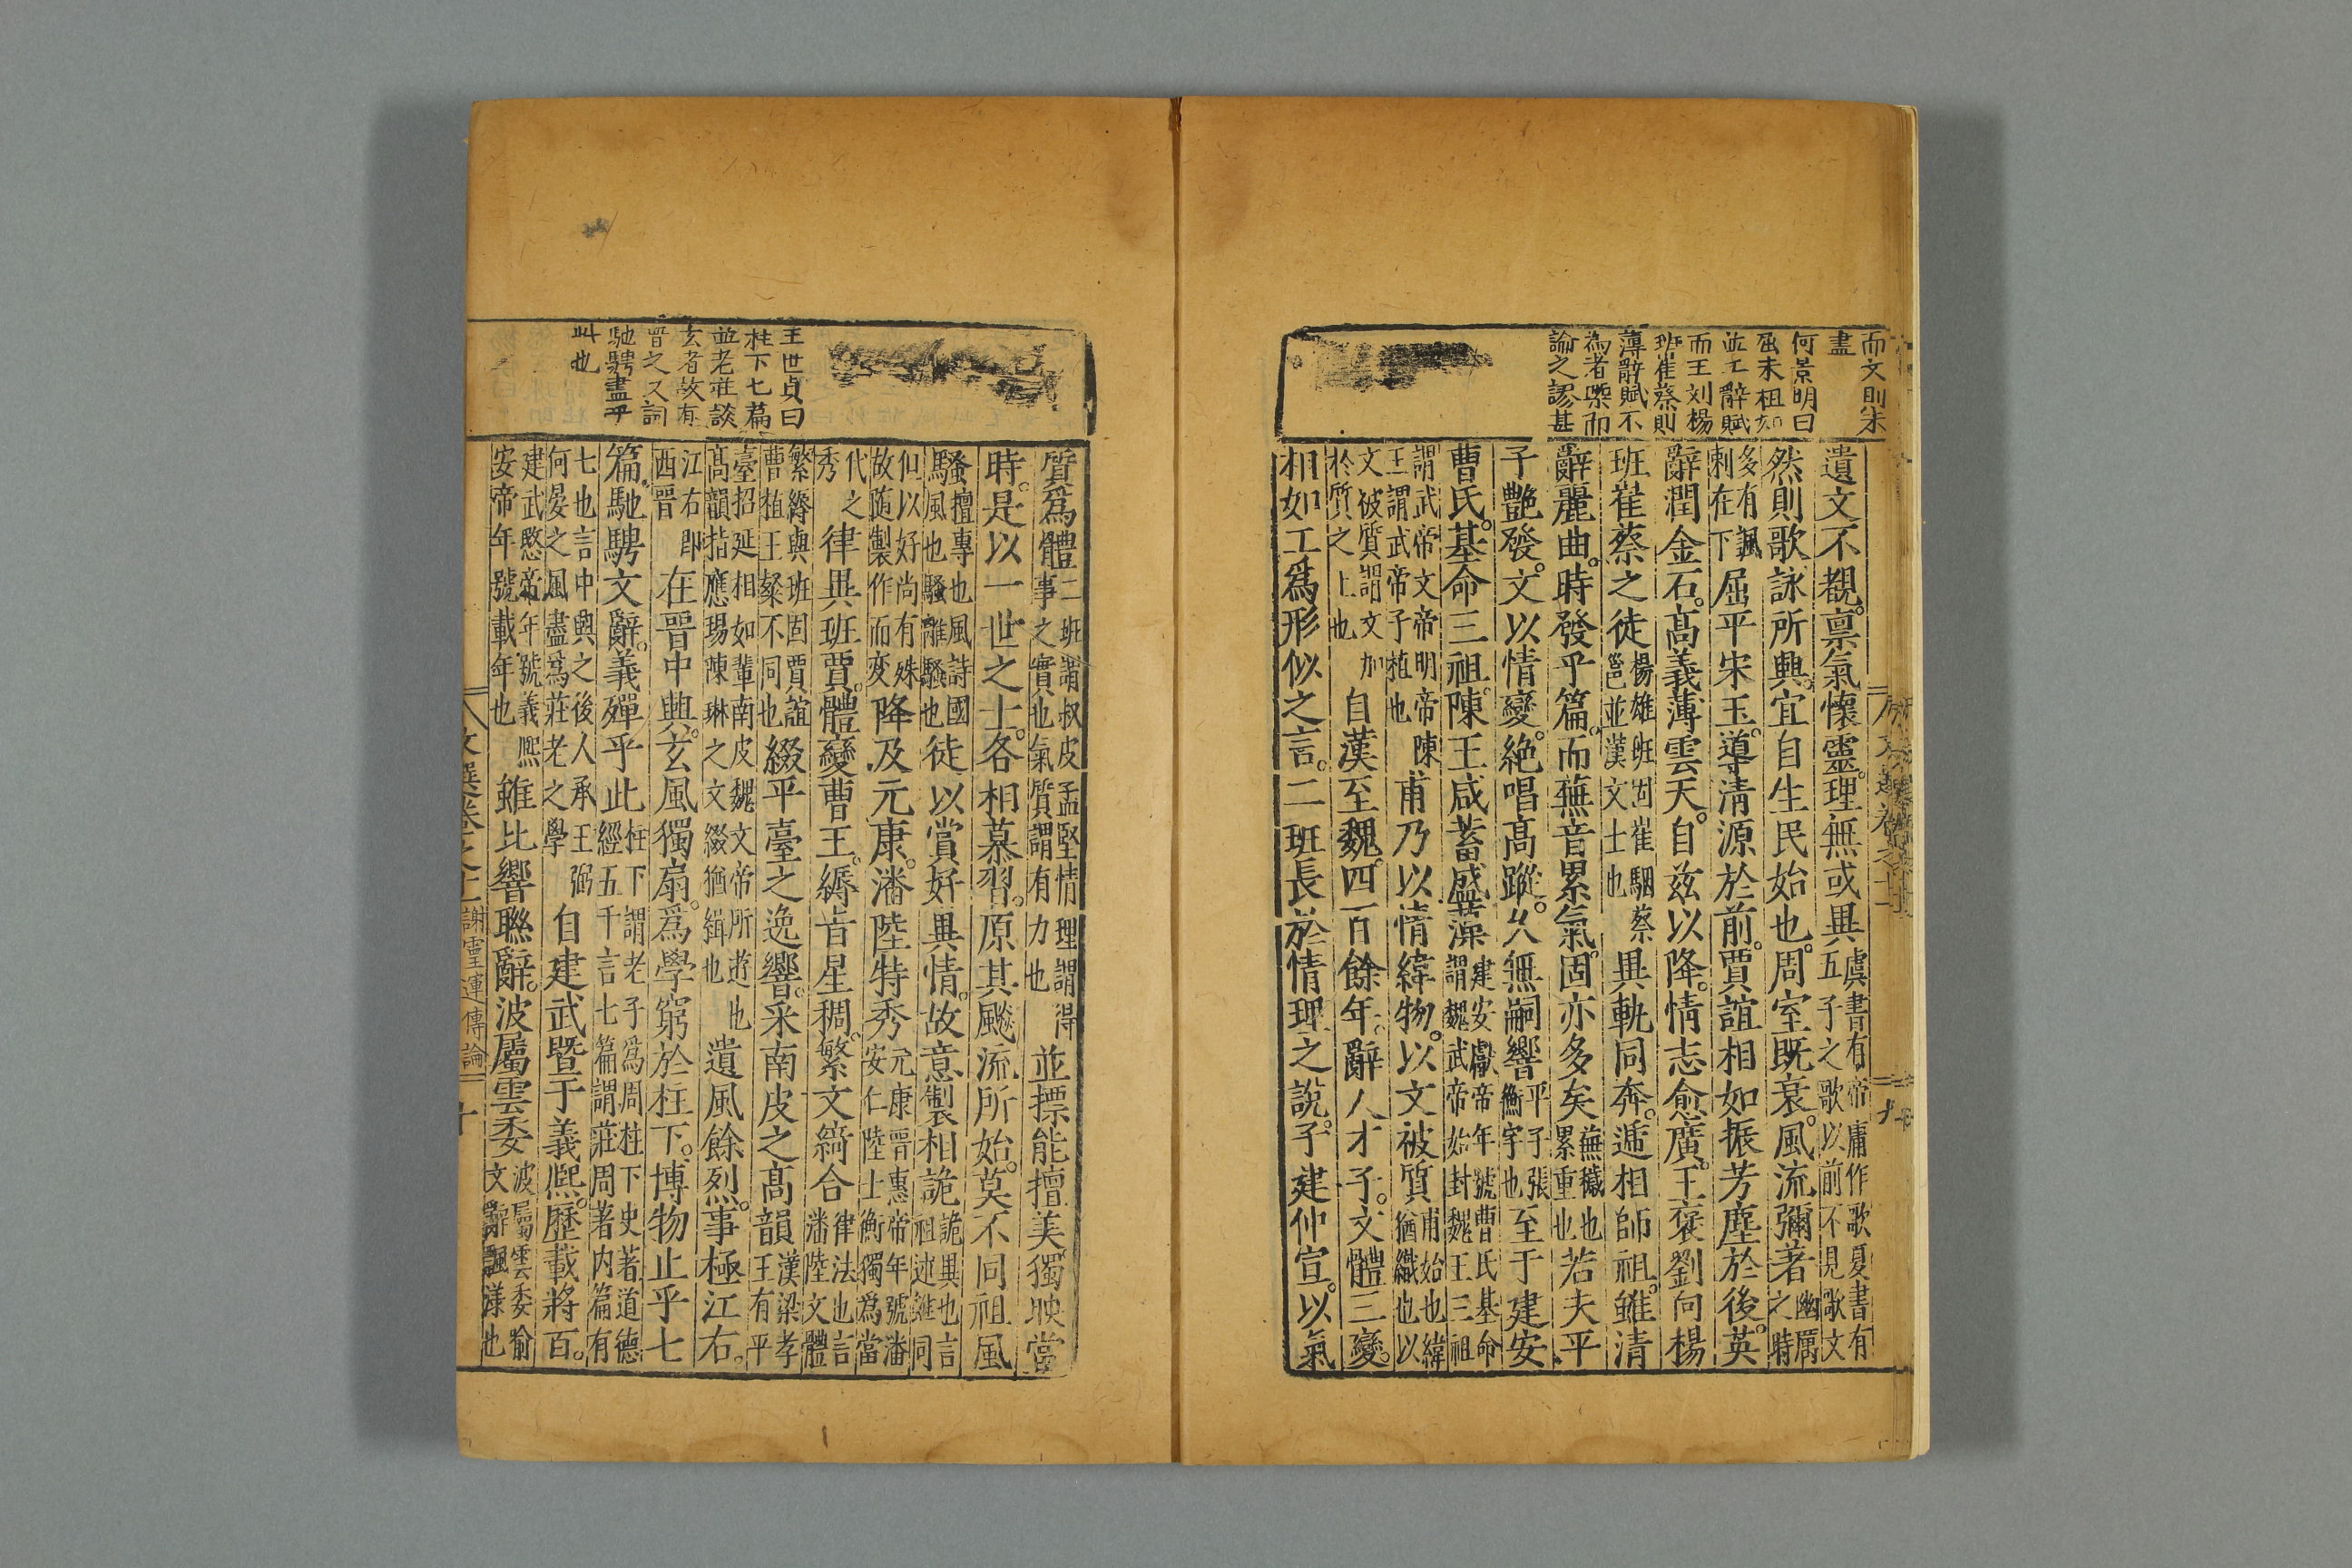 而文則未
盡
何景明曰
並工辭賦
而王刘楊
班崔蔡則
薄辭賦不
為者槩而
論之謬甚
遺文不覩。禀氣懷靈。理無或異虞書有帝庸作歌夏書有五子之歌以前不見歌文
然則歌詠所興。宜自生民始也。周室旣衰。風流彌著幽厲之時
多有諷刺在下屈平宋玉。導清源於前。賈誼相如振芳塵於後。英
辭潤金石。高義薄雲天。自茲以降。情志愈廣。王褒劉向楊
班崔蔡之徒楊雄班固崔駰蔡邕並漢文士也異軌同奔。遞相師祖。雖清
辭麗曲。時發乎篇。而蕪音累氣。固亦多矣蕪穢也累重也若夫平
子艷發。文以情變。絶唱高蹤。久無嗣響平子張衡字也至于建安
曹氏。基命三祖。陳王咸蓄盛藻建安獻帝年號曹氏基命謂魏武帝始封魏王三祖
謂武帝文帝明帝陳王謂武帝子植也甫乃以情緯物。以文被質甫始也緯猶織也以
文被質謂文加於質之上也自漢至魏。四百餘年。辭人才子。文體三變。
相如工爲形似之言。二班長於情理之說。子建仲宣。以氣
王世貞曰
柱下七篇
並老莊談
玄者故有
晉之文詞
馳騁盡乎
此也
質爲體二班謂叔皮孟堅情理謂得事之實也氣質謂有力也並摽能擅美。獨映當
時。是以一世之士。各相慕習。原其飈流所始。莫不同祖風
騷擅專也風詩國風也騷離騷也徒以賞好異情。故意製相詭詭異也言祖述雖同
但以好尚有殊故隨製作而変降及元康。潘陸特秀元康晋惠帝年號潘安仁陸士衡獨爲當
代之秀律異班賈。體變曹王。縟旨星稠。繁文綺合律法也言潘陸文體
繁縟與班固賈誼曹植王粲不同也綴平臺之逸響。采南皮之高韻漢梁孝王有平
臺招延相如輩南皮魏文帝所遊也高韻指應瑒陳琳之文綴猶緝也遺風餘烈。事極江右。
江右即西晋在晉中興。玄風獨扇。爲學窮於柱下。博物止乎七
篇。馳騁文辭。義殫乎此柱下謂老子爲周柱下史著道德經五千言七篇謂莊周著内篇有
七也言中興之後人承王弼何晏之風盡爲莊老之學自建武曁于義熙。歷載將百。
建武愍帝年號義熙安帝年號載年也雖比響聯辭。波屬雲委波屬雲委喻文辭飄漾也
謝靈運傳論
十